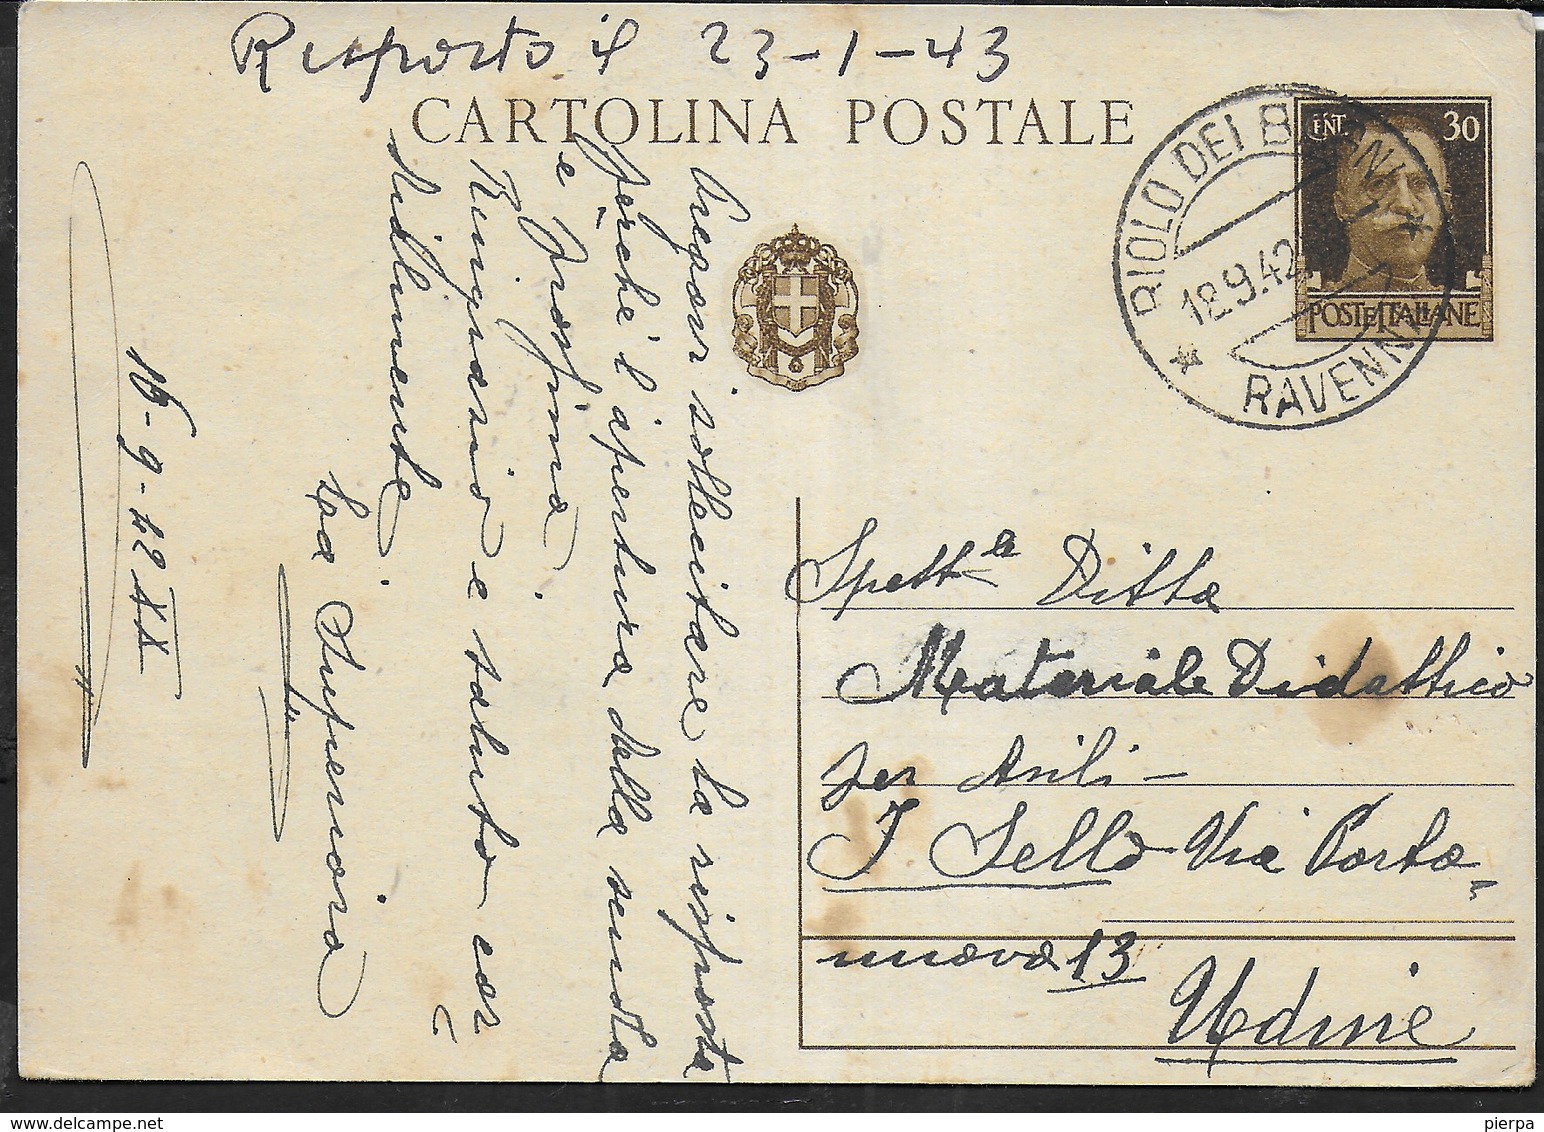 Risposto il 23-1-43
CARTOLINA POSTALE
CENT. 30
POSTE ITALIANE
RIOLO DEI BAGNI
18.9.42
RAVENNA
Spett.le Ditta
Materiale Didattico
per Asili -
I Sello Via Porta
nuova 13
Udine
Pregasi sollecitare la risposta
perchè l'apertura della scuola
è prossima.
Ringrazio e saluto cor
dialmente
La Superiora
16-9-42 XX
www.delcampe.net
pierpa